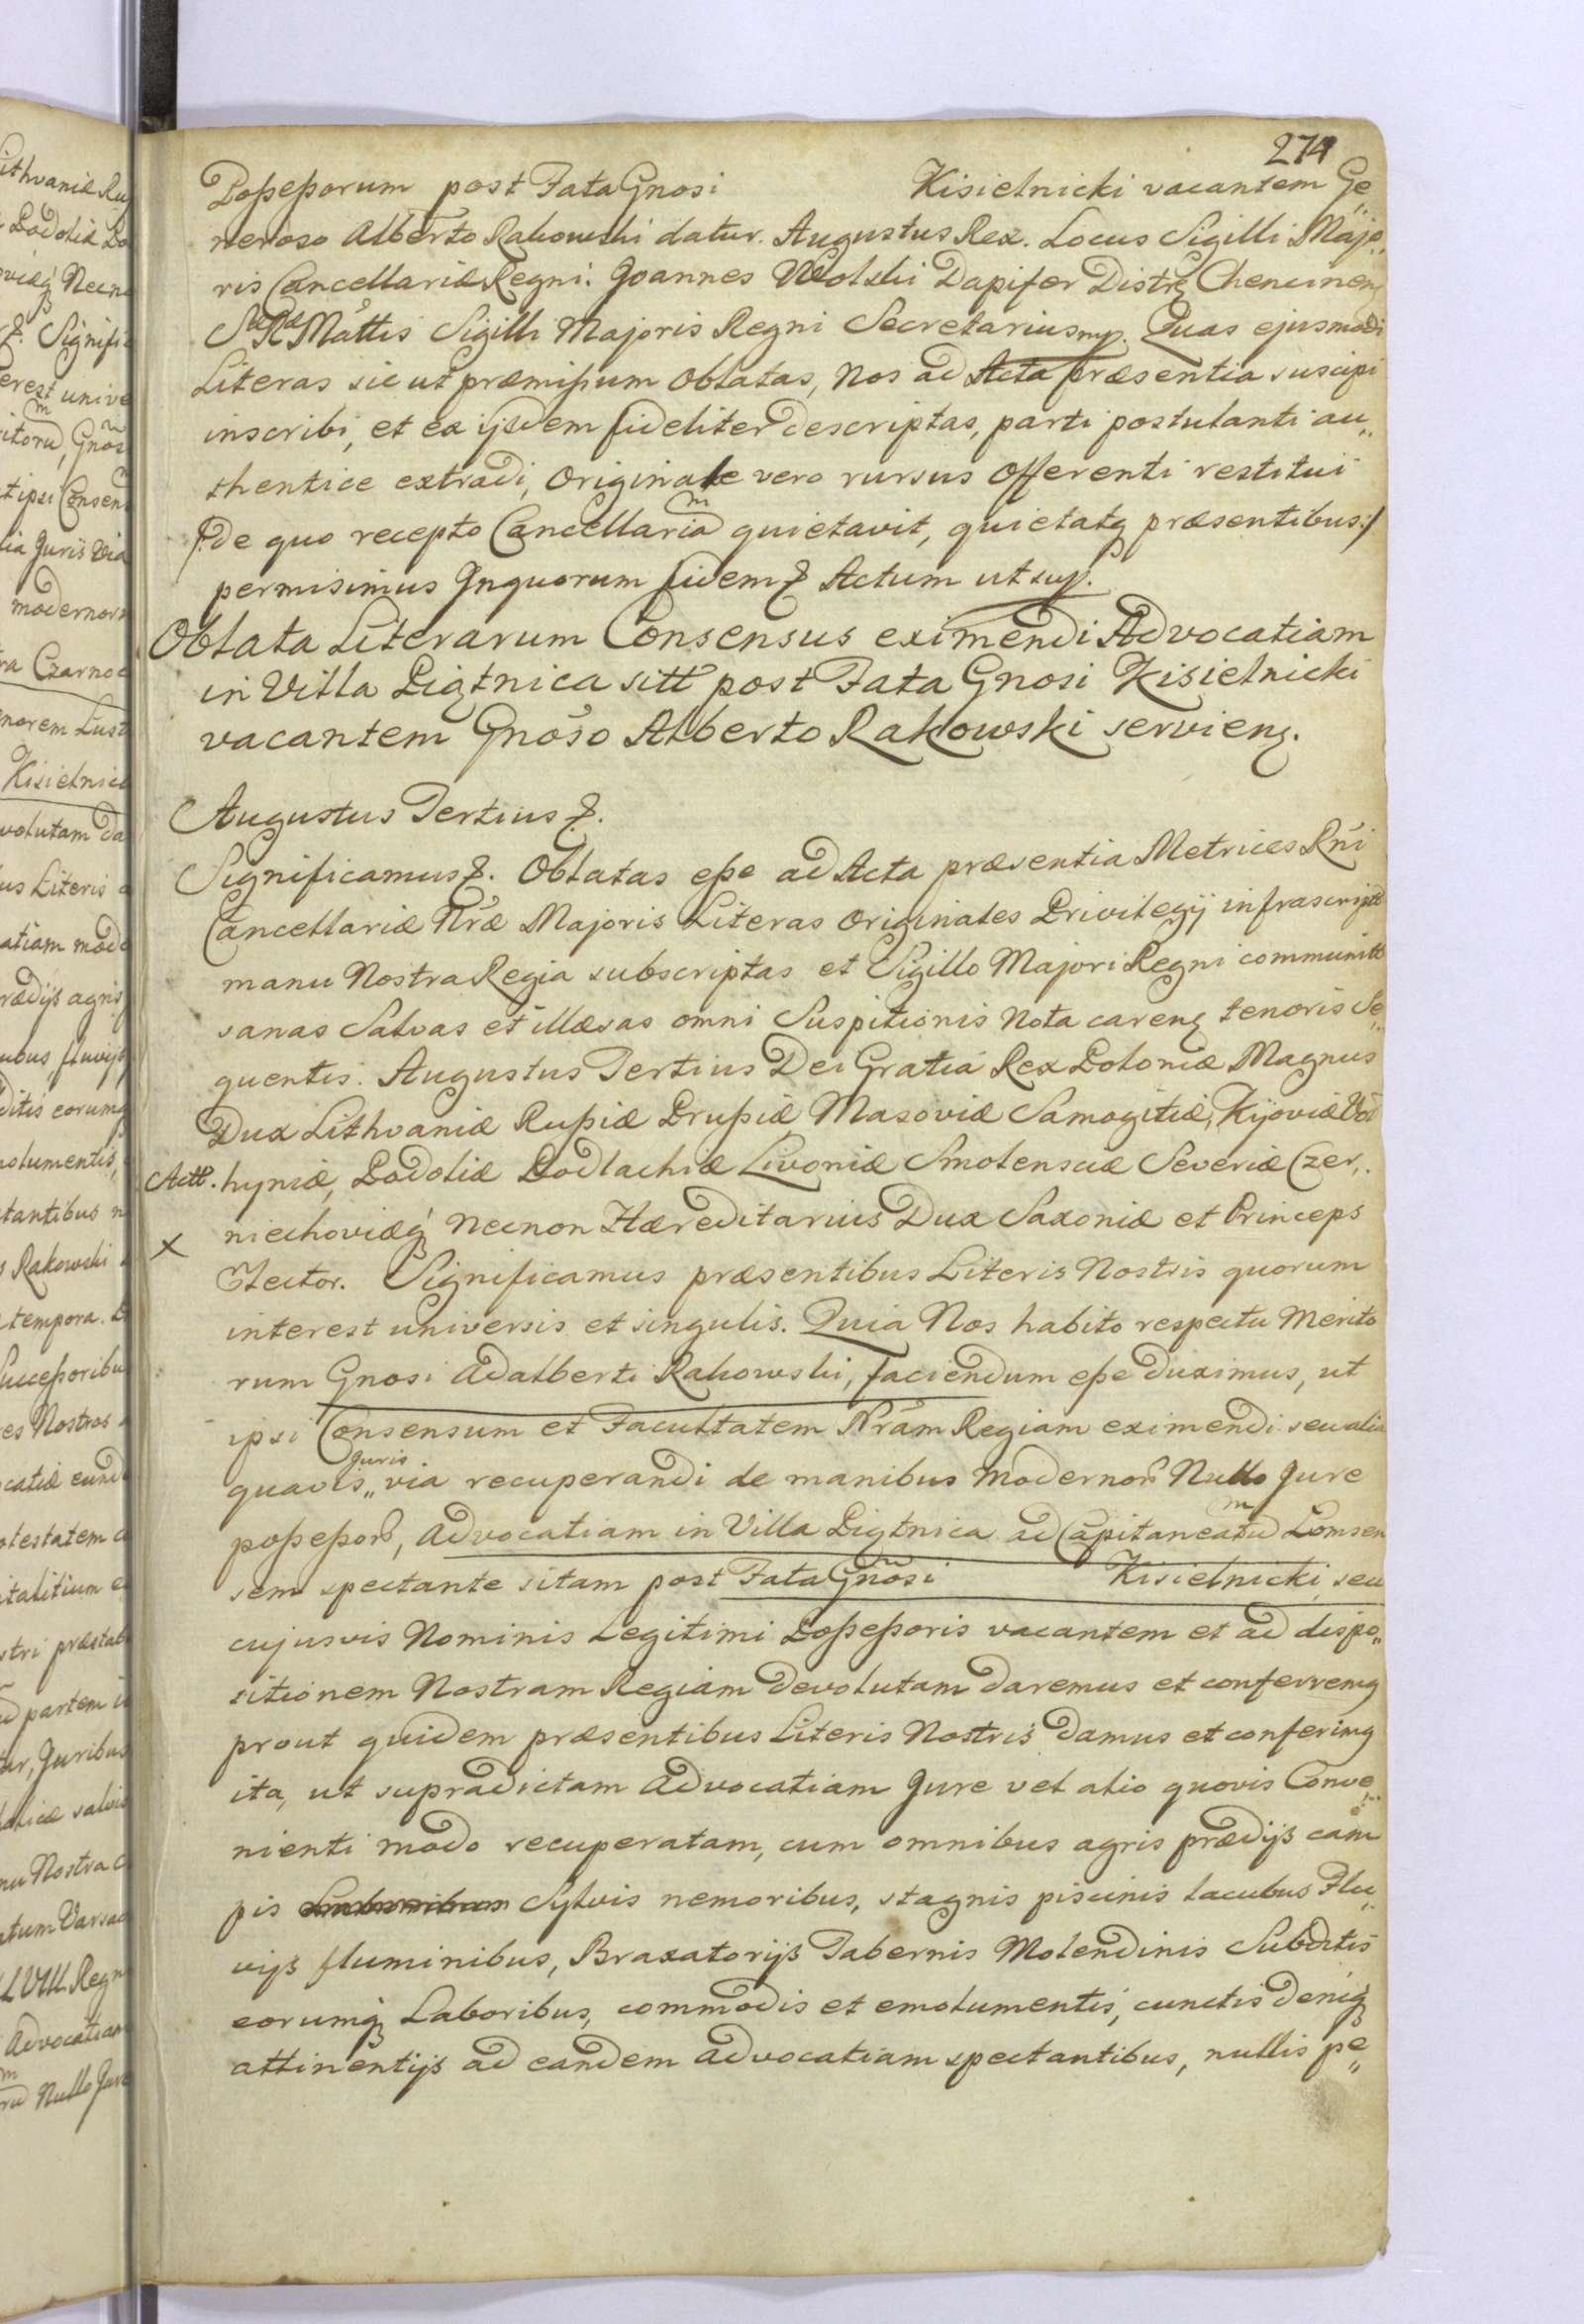 274
Possessorum post Fata Gnosi Kisielnicki vacantem Ge„
neroso Alberto Rakowski datur. Augustus Rex. Locus Sigilli Majo„
ris Cancellariæ Regni. Joannes Wolski Dapifer Distrꝫ Chencinenꝫ
Sæ Ræ Mattis Sigilli Majoris Regni Secretarius mp. Quas ejusmodi
Literas sic ut præmissum oblatas, Nos ad Acta præsentia suscipi
inscribi, et ex ijsdem fideliter descriptas, parti postulanti au„
thentice extradi, Originale vero rursus Offerenti restitui
/:de quo recepto Cancellariam quietavit, quietatꝫ præsentibus:/
permisimus Inquorum fidem & Actum ut sup.
Oblata Literarum Consensus eximendi Advocatiam
in Villa Piątnica sitt post Fata Gnosi Kisielnicki
vacantem Gnoso Alberto Rakowski servienꝫ.
Augustus Tertius &.
Significamus &. Oblatas esse ad Acta præsentia Metrices Rni
Cancellariæ Nræ Majoris Literas Originales Privilegij infrascriptt
manu Nostra Regia subscriptas et Sigillo Majori Regni communitt
sanas Salvas et illæsas omni Suspitionis Nota carenꝫ tenoris Se„
quentis. Augustus Tertius Dei Gratia Rex Poloniæ Magnus
Dux Lithvaniæ Russiæ Prussiæ Masoviæ Samogitiæ, Kijoviæ Vol
Actt. hyniæ, Podoliæ Podlachiæ Livoniæ Smolensciæ Severiæ Czer„
X niechoviæqꝫ necnon Hæreditarius Dux Saxoniæ et Princeps
Elector. Significamus præsentibus Literis Nostris quorum
interest universis et singulis. Quia Nos habito respectu Merito
rum Gnosi Adalberti Rakowski, faciendum esse duximus, ut
ipsi Consensum et Facultatem Nram Regiam eximendi seu alia
Juris
quavis„ via recuperandi de manibus modernor Nullo Jure
possessor, Advocatiam in Villa Piątnica ad Capitaneatum Lomsen
sem spectante sitam post Fata Gnosi Kisielnicki, seu
cujusvis Nominis Legitimi Possessoris vacantem et ad dispo„
sitionem Nostram Regiam devolutam daremus et conferremꝫ
prout quidem præsentibus Literis Nostris damus et conferimꝫ
ita, ut supradictam Advocatiam Jure vel alio quovis Conve„
nienti modo recuperatam, cum omnibus agris prædijs cam
pis Sylvis nemoribus, stagnis piscinis lacubus Flu„
vijs fluminibus, Braxatorijs Tabernis Molendinis Subditis
eorumqꝫ Laboribus, commodis et emolumentis, cunctis deniqꝫ
attinentijs ad eandem Advocatiam spectantibus, nullis pe„